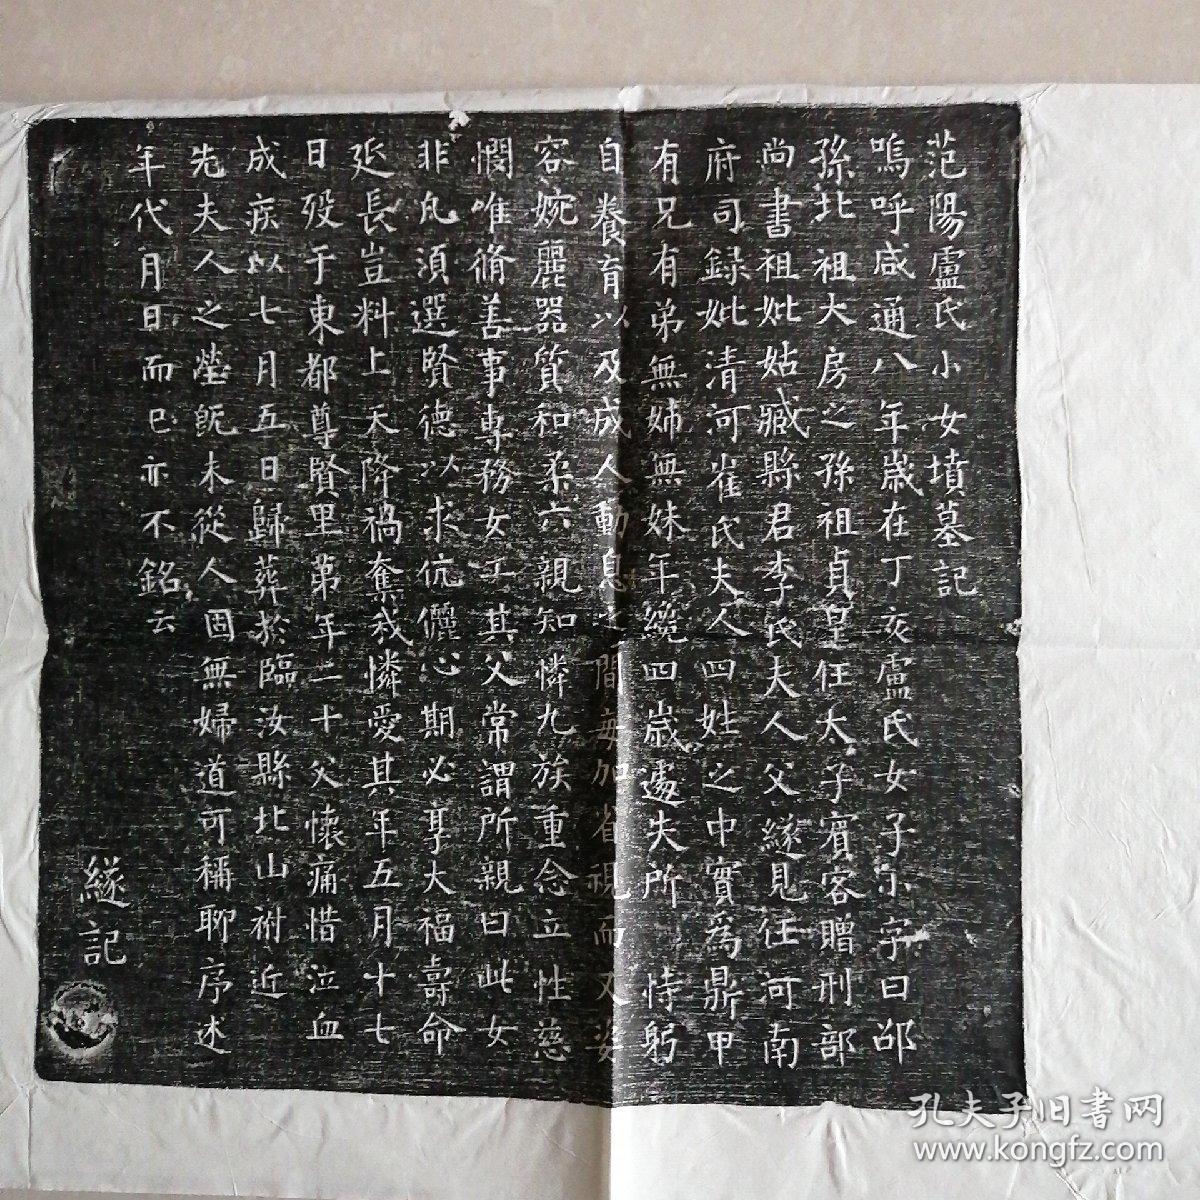 范陽盧氏小女墳墓記
嗚呼咸通八年歲在丁亥盧氏女子小字曰邵
孫北祖大房之孫祖貞皇任太子賓客贈刑部
尚書祖妣姑臧縣君李氏夫人父緣見任河南
府司録妣清河崔氏夫人四姓之中實為鼎甲
有兄有弟無姉無妹年纔四歲遽失所恃躬
自養育以及成人動息之間每加省視而又姿
容婉麗器質和柔六親知憐九族重念立性慈
憫唯脩善事專務女工其父常謂所親曰此女
非凡須選賢德以求伉儷心期必享大福壽命
延長豈料上天降禍奪我憐愛其年五月十七
日歿于東都尊賢里第年二十父懷痛惜泣血
成疾以七月五日歸葬於臨汝縣北山祔近
先夫人之塋旣未從人固無婦道可稱聊序述
年代月日而已亦不銘云
緣記
孔夫子旧书网
www.kongfz.com